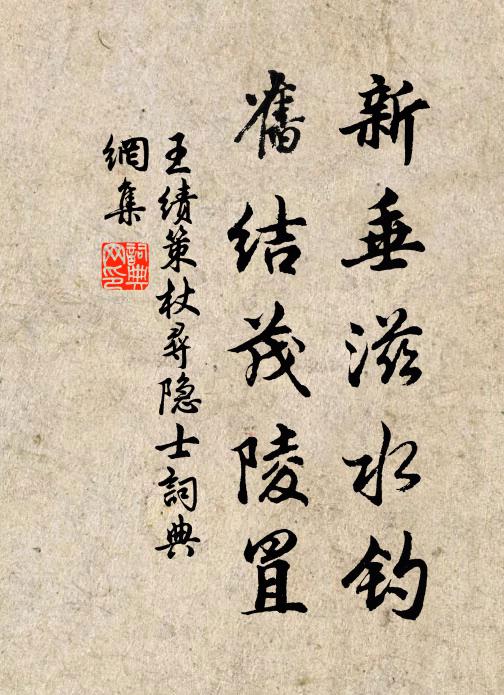 新垂滋水钓
舊结茂陵罝
王绩策杖尋隐士詞典
網集
詞典网印